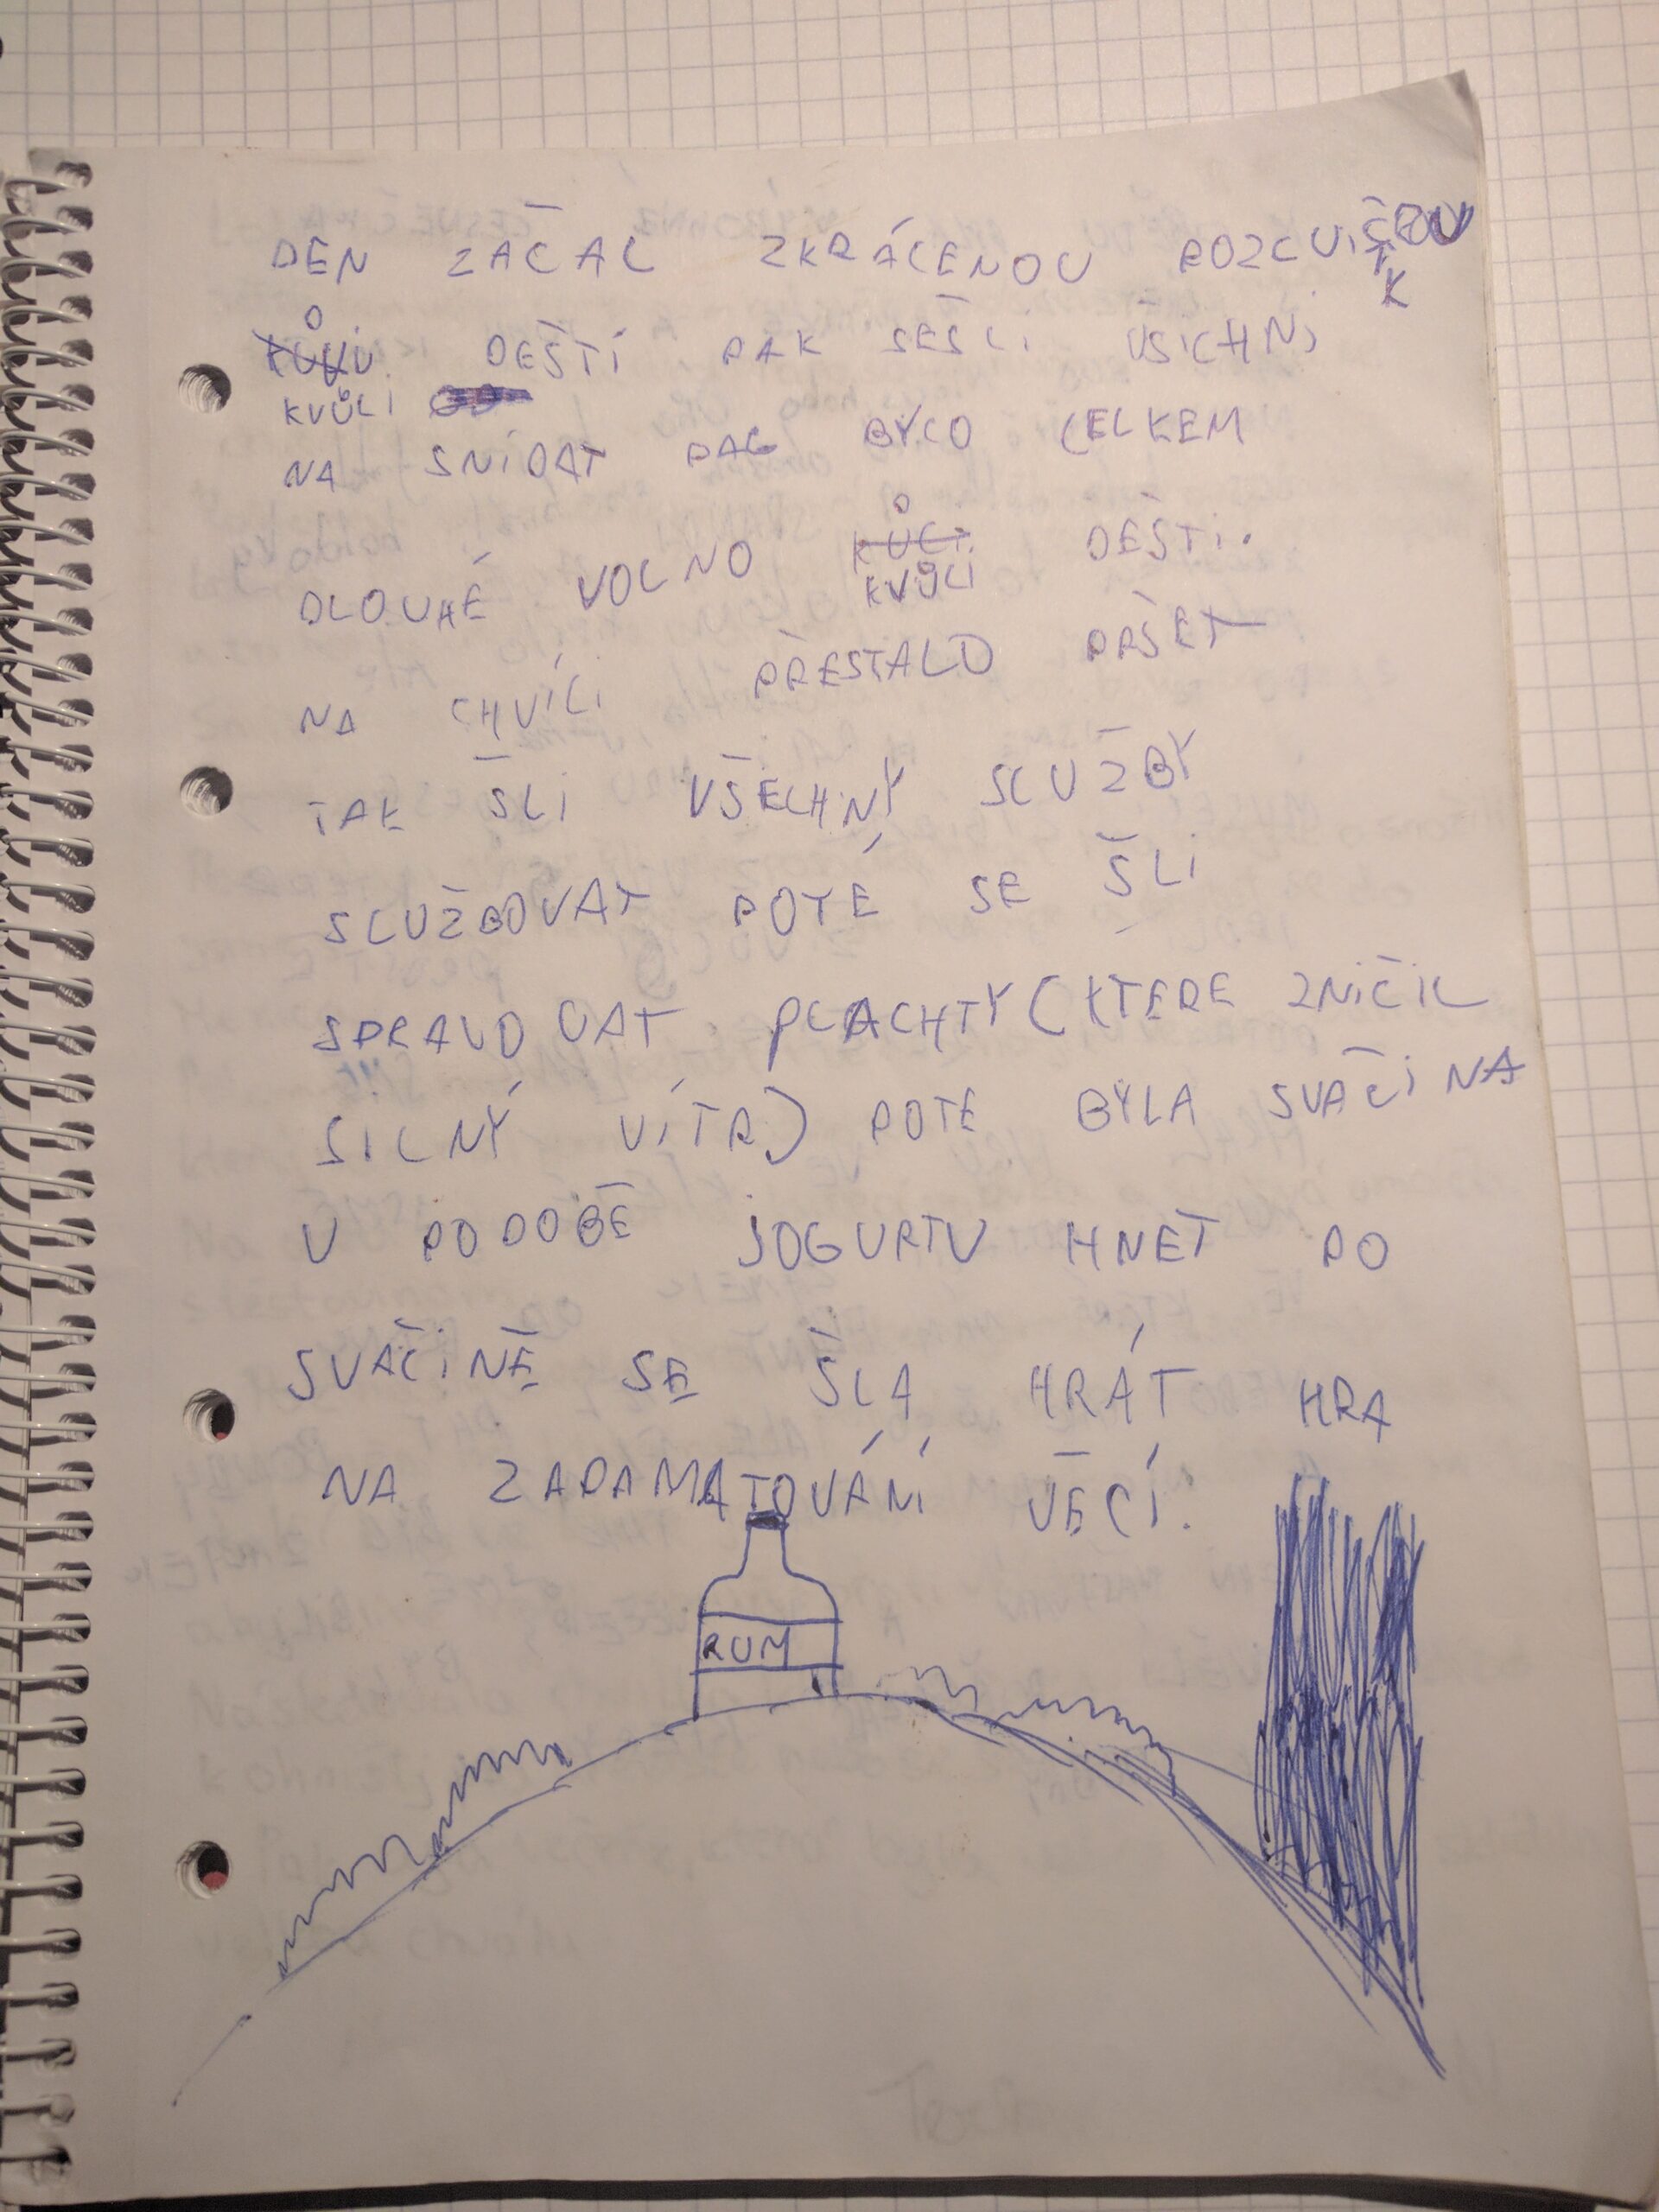 DEN ZAČAL ZKRÁCENOU ROZCVIŠKOU
KŮLI DEŠTI PAK SEŠLI VŠICHNI
KVŮLI
NA SNÍDAT PAG BYLO CELKEM
DLOUHÉ VOLNO KŮLI DEŠTI.
KVŮLI
NA CHVÍLI PŘESTALO PRŠET
TAK ŠLI VŠECHNY SLUŽBY
SLUŽBOVAT POTÉ SE ŠLI
SPRAVOVAT PLACHTY (KTERE ZNIČIL
SILNÝ VÍTR) POTE BYLA SVAČINA
V PODOBĚ JOGURTU HNET PO
SVAČINĚ SE ŠLA HRÁT HRA
NA ZAPAMATOVÁNÍ VĚCÍ.
RUM